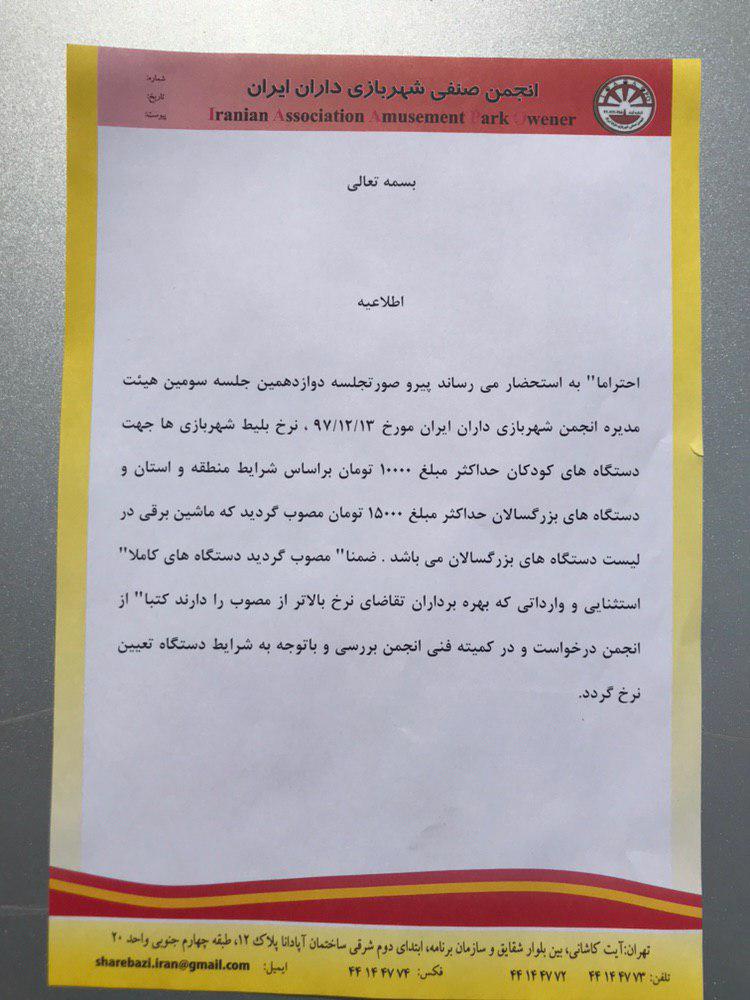 انجمن صنفی شهربازی داران ایران
Iranian Association Amusement Park Owener
شماره:
تاریخ:
پیوست:
بسمه تعالی
اطلاعیه
احتراما" به استحضار می رساند پیرو صورتجلسه دوازدهمین جلسه سومین هیئت
مدیره انجمن شهربازی داران ایران مورخ ۹۷/۱۲/۱۳ ، نرخ بلیط شهربازی ها جهت
دستگاه های کودکان حداکثر مبلغ ۱۰۰۰۰ تومان براساس شرایط منطقه و استان و
دستگاه های بزرگسالان حداکثر مبلغ ۱۵۰۰۰ تومان مصوب گردید که ماشین برقی در
لیست دستگاه های بزرگسالان می باشد . ضمنا" مصوب گردید دستگاه های کاملا"
استثنایی و وارداتی که بهره برداران تقاضای نرخ بالاتر از مصوب را دارند کتبا" از
انجمن درخواست و در کمیته فنی انجمن بررسی و باتوجه به شرایط دستگاه تعیین
نرخ گردد.
تهران: آیت کاشانی، بین بلوار شقایق و سازمان برنامه، ابتدای دوم شرقی ساختمان آپادانا پلاک ۱۲، طبقه چهارم جنوبی واحد ۲۰
تلفن: ۴۴ ۱۴ ۴۷ ۷۳ ۴۴ ۱۴ ۴۷ ۷۲ فکس: ۴۴ ۱۴ ۴۷ ۷۴ ایمیل: sharebazi.iran@gmail.com